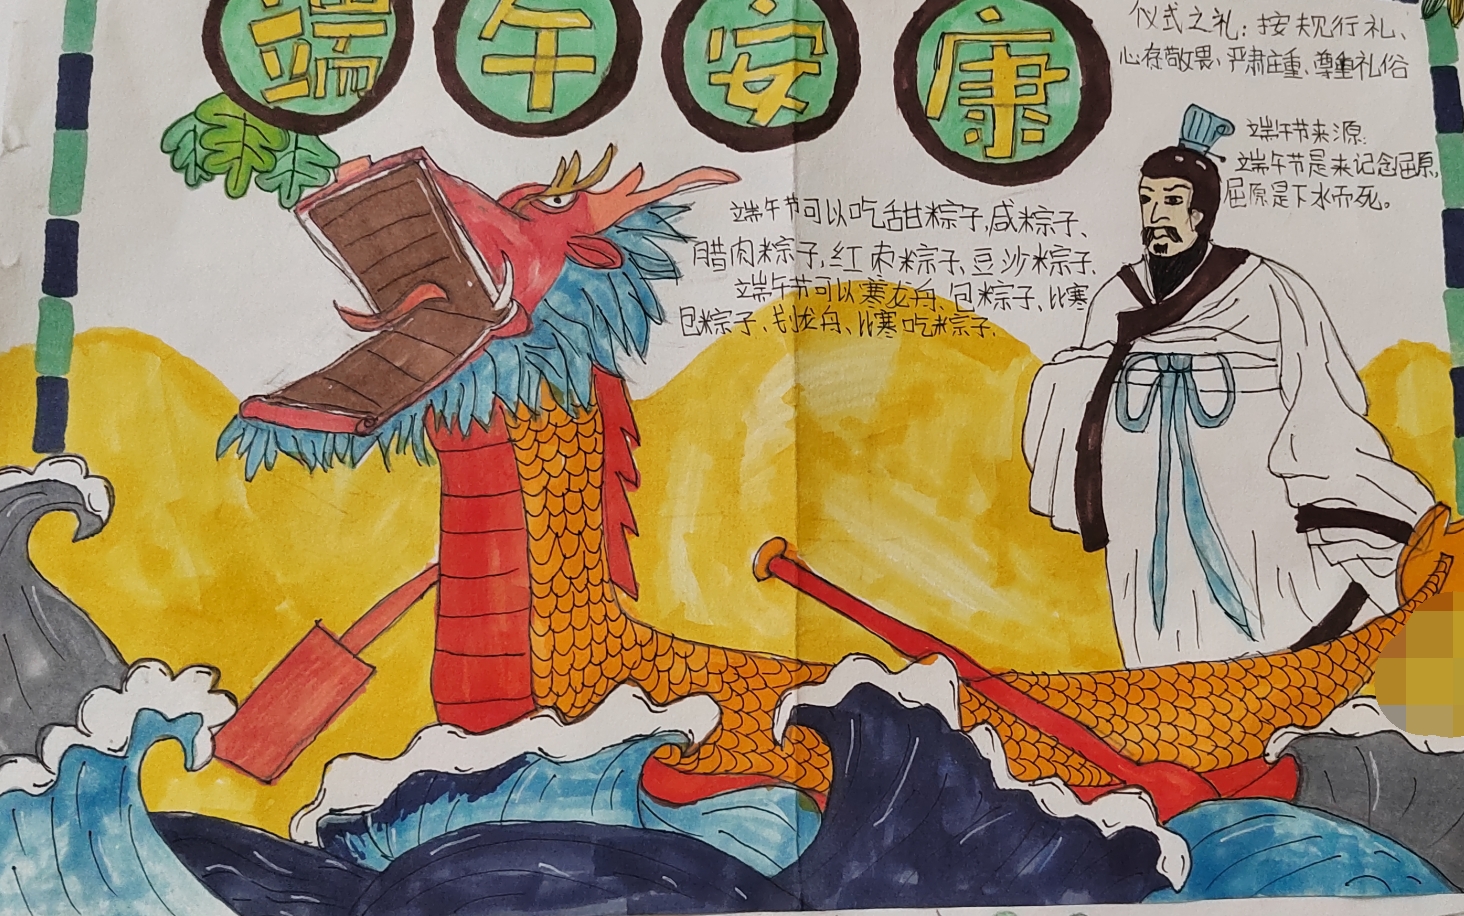 端午安康
仪式之礼：按规行礼、
心存敬畏、严肃庄重、尊重礼俗
端午节来源:
端午节是来记念屈原,
屈原是下水而死。
端午节可以吃甜粽子,咸粽子、
腊肉粽子,红枣粽子、豆沙粽子、
端午节可以寒龙舟、包粽子、比寒
包粽子、划龙舟、比寒吃粽子、